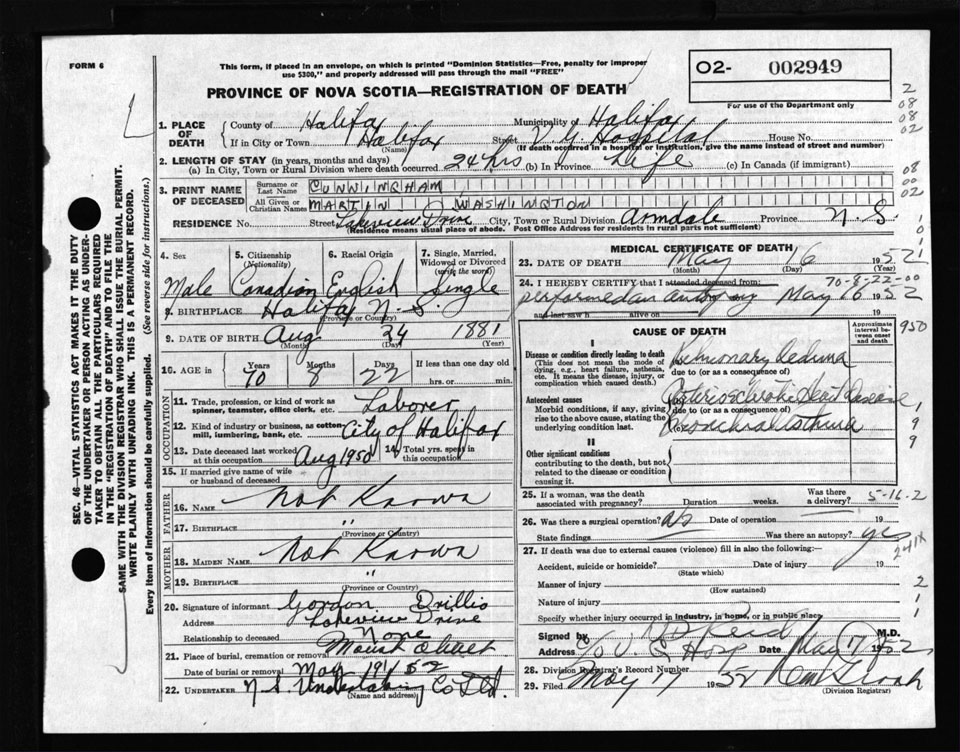 FORM 6
This form, if placed in an envelope, on which is printed "Dominion Statistics—Free, penalty for improper
use $300," and properly addressed will pass through the mail "FREE"
O2- 002949
For use of the Department only
PROVINCE OF NOVA SCOTIA—REGISTRATION OF DEATH
1. PLACE OF DEATH { County of Halifax Municipality of Halifax
If in City or Town Halifax (Name) Street V. G. Hospital House No.
(If death occurred in a hospital or institution, give the name instead of street and number)
2. LENGTH OF STAY (in years, months and days)
(a) In City, Town or Rural Division where death occurred 24 hrs (b) In Province Life (c) In Canada (if immigrant)
3. PRINT NAME OF DECEASED { Surname or Last Name CUNNINGHAM
All Given or Christian Names MARTIN WASHINGTON
RESIDENCE No. Street Lakeview Drive City, Town or Rural Division Armdale Province N. S.
(Residence means usual place of abode. Post Office Address for residents in rural parts not sufficient)
4. Sex 5. Citizenship (Nationality) 6. Racial Origin 7. Single, Married, Widowed or Divorced (write the word)
Male Canadian English Single
8. BIRTHPLACE Halifax N. S.
(Province or Country)
9. DATE OF BIRTH Aug 24 1881
(Month) (Day) (Year)
10. AGE in Years Months Days If less than one day old
70 8 22 hrs. or min.
OCCUPATION
11. Trade, profession, or kind of work as spinner, teamster, office clerk, etc. Laborer
12. Kind of industry or business, as cotton mill, lumbering, bank, etc. City of Halifax
13. Date deceased last worked at this occupation Aug 1950 14. Total yrs. spent in this occupation
15. If married give name of wife or husband of deceased
FATHER
16. NAME Not Known
17. BIRTHPLACE "
(Province or Country)
MOTHER
18. MAIDEN NAME Not Known
19. BIRTHPLACE "
(Province or Country)
20. Signature of informant Gordon Drillio
Address Lakeview Drive
Relationship to deceased None
21. Place of burial, cremation or removal Mount Olivet
Date of burial or removal May 19 1952
22. UNDERTAKER N. S. Undertaking Co Ltd.
(Name and address)
MEDICAL CERTIFICATE OF DEATH
23. DATE OF DEATH May 16 1952
(Month) (Day) (Year)
70-8-22-00
24. I HEREBY CERTIFY that I attended deceased from:
performed an autopsy May 16 1952
and last saw h alive on
CAUSE OF DEATH
Approximate interval between onset and death
I
Disease or condition directly leading to death
(This does not mean the mode of dying, e.g., heart failure, asthenia, etc. It means the disease, injury, or complication which caused death.)
(a) Pulmonary Oedema
due to (or as a consequence of)
Antecedent causes
Morbid conditions, if any, giving rise to the above cause, stating the underlying condition last.
(b) Arteriosclerotic Heart Disease
due to (or as a consequence of)
(c) Bronchial Asthma
II
Other significant conditions
contributing to the death, but not related to the disease or condition causing it.
25. If a woman, was the death associated with pregnancy? Duration weeks. Was there a delivery? 5-16-2
26. Was there a surgical operation? No Date of operation 19
State findings Was there an autopsy? yes
241X
27. If death was due to external causes (violence) fill in also the following:—
Accident, suicide or homicide? Date of injury 19
(State which)
Manner of injury
(How sustained)
Nature of injury
Specify whether injury occurred in industry, in home, or in public place
Signed by Reid M.D.
Address c/o V. G. Hosp Date May 17 1952
28. Division Registrar's Record Number
29. Filed May 17 1952
(Division Registrar)
SEC. 46—VITAL STATISTICS ACT MAKES IT THE DUTY
OF THE UNDERTAKER OR PERSON ACTING AS UNDERTAKER
TO OBTAIN ALL THE PARTICULARS REQUIRED
IN THE "REGISTRATION OF DEATH" AND TO FILE THE
SAME WITH THE DIVISION REGISTRAR WHO SHALL ISSUE THE BURIAL PERMIT.
WRITE PLAINLY WITH UNFADING INK. THIS IS A PERMANENT RECORD.
Every item of information should be carefully supplied. (See reverse side for instructions.)
2
08
08
02
08
00
02
950
1
9
9
2
1
1